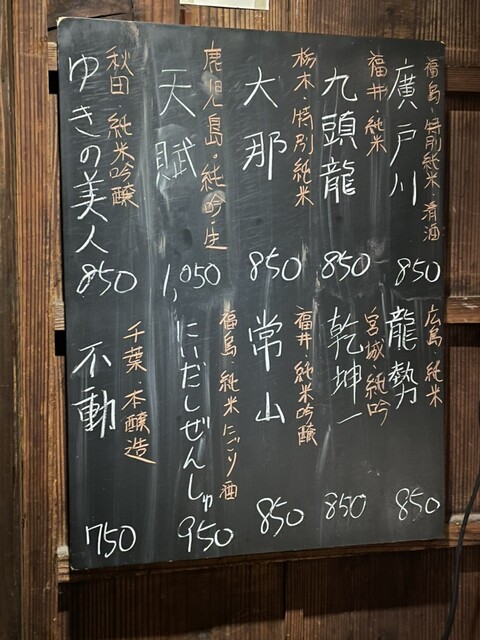 福島・特別純米 清酒
廣戸川
850
福井・純米
九頭龍
850
栃木・特別純米
大那
850
鹿児島・純吟・生
天賦
1,050
秋田・純米吟醸
ゆきの美人
850
広島・純米
龍勢
850
宮城・純吟
乾坤一
850
福井・純米吟醸
常山
850
福島 純米 にごり酒
にいだしぜんしゅ
950
千葉・本醸造
不動
750